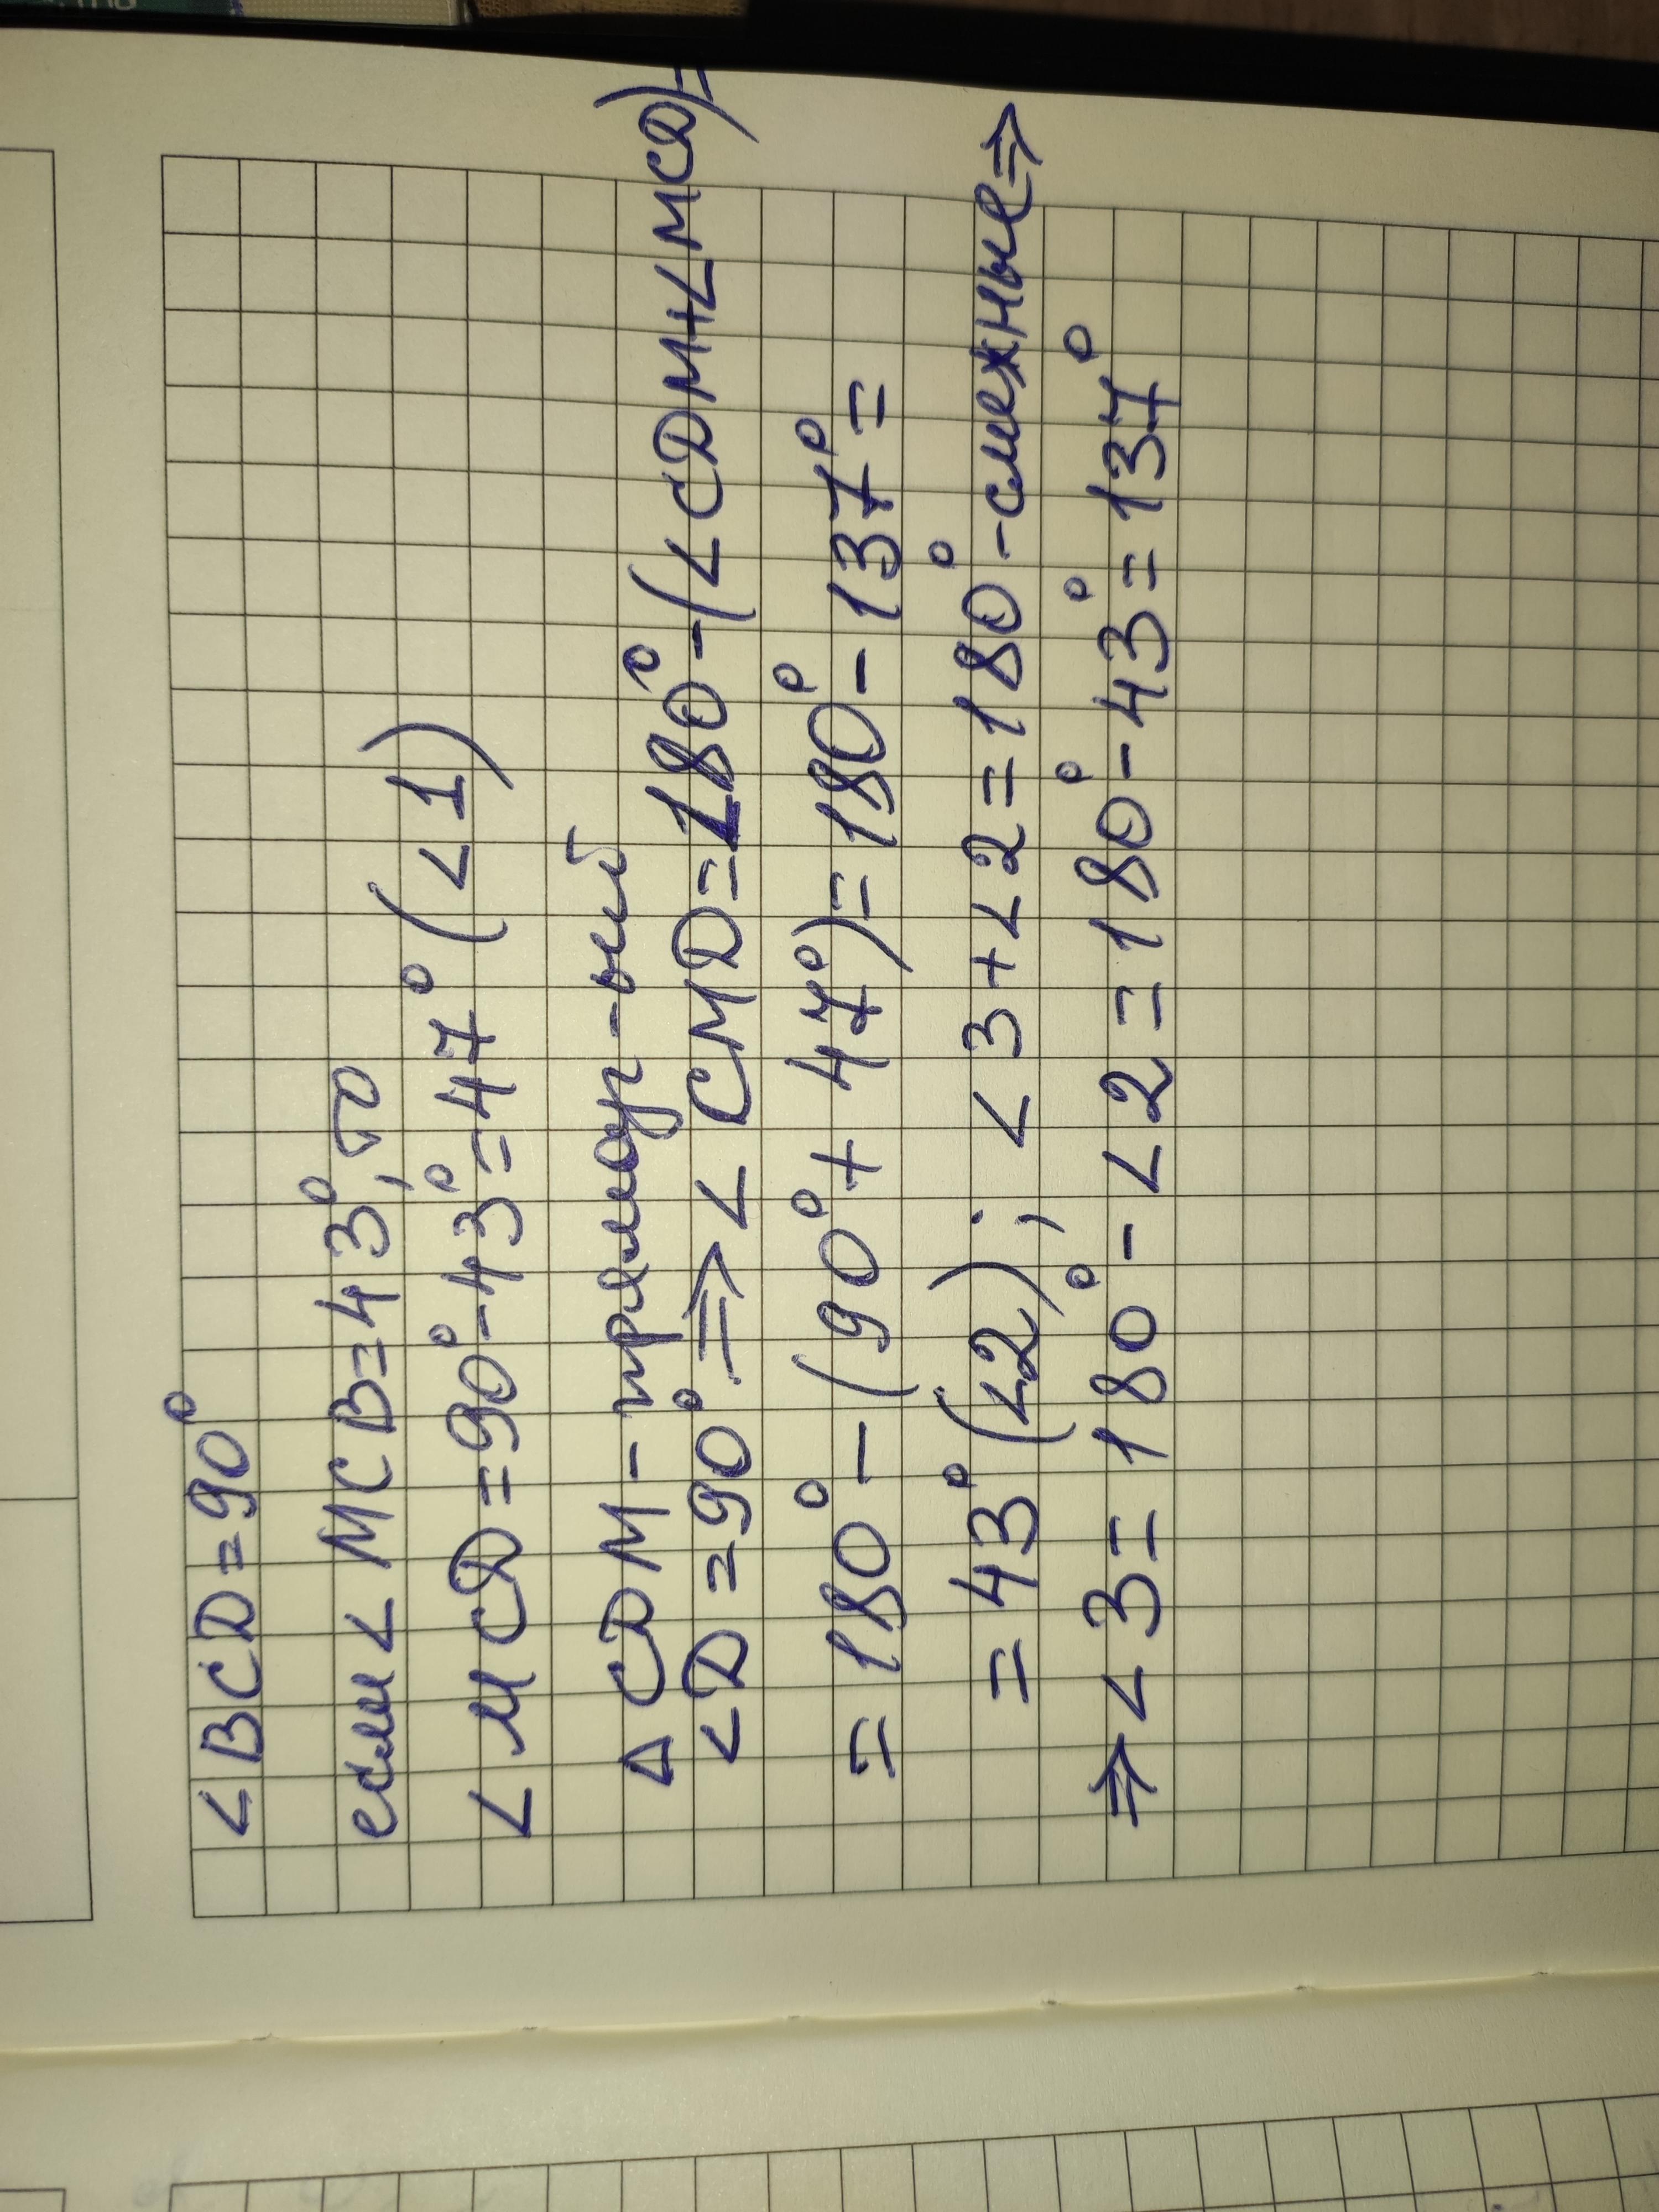 ∠BCD=90°
если ∠ MCB=43°, то
∠ MCD=90°-43°=47° (∠1)
∆ CDM - прямоуг-ый
∠D=90° ⇒ ∠ CMD=180°-(∠CDM+∠MCD)=
=180°-(90°+47°)=180°-137°=
=43° (∠2); ∠3+∠2=180°-смежные⇒
⇒∠3=180°-∠2=180°-43°=137°